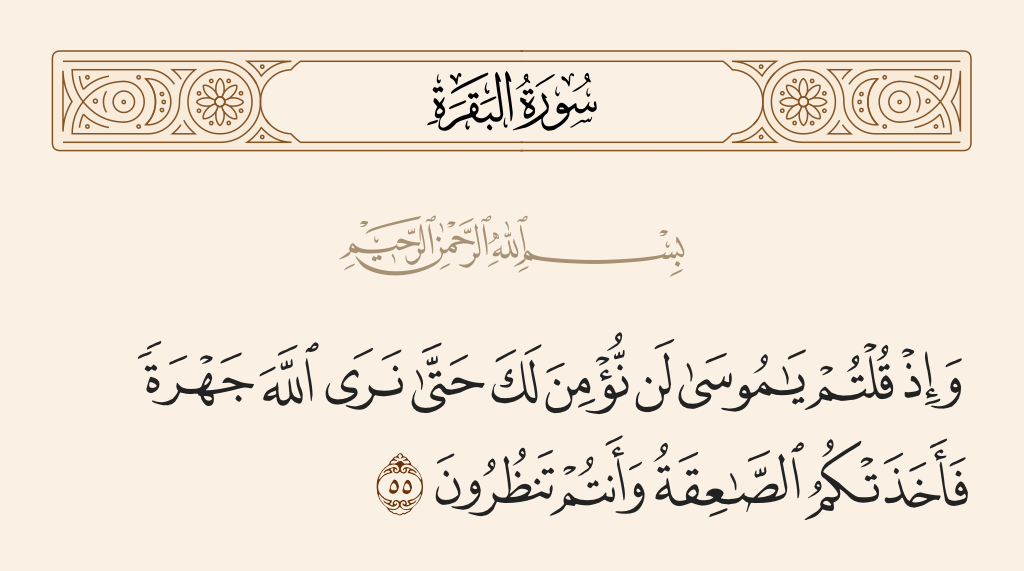 سُورَةُ البَقَرَةِ
بِسْمِ ٱللَّهِ ٱلرَّحْمَٰنِ ٱلرَّحِيمِ
وَإِذْ قُلْتُمْ يَـٰمُوسَىٰ لَن نُّؤْمِنَ لَكَ حَتَّىٰ نَرَى ٱللَّهَ جَهْرَةً
فَأَخَذَتْكُمُ ٱلصَّـٰعِقَةُ وَأَنتُمْ تَنظُرُونَ ٥٥